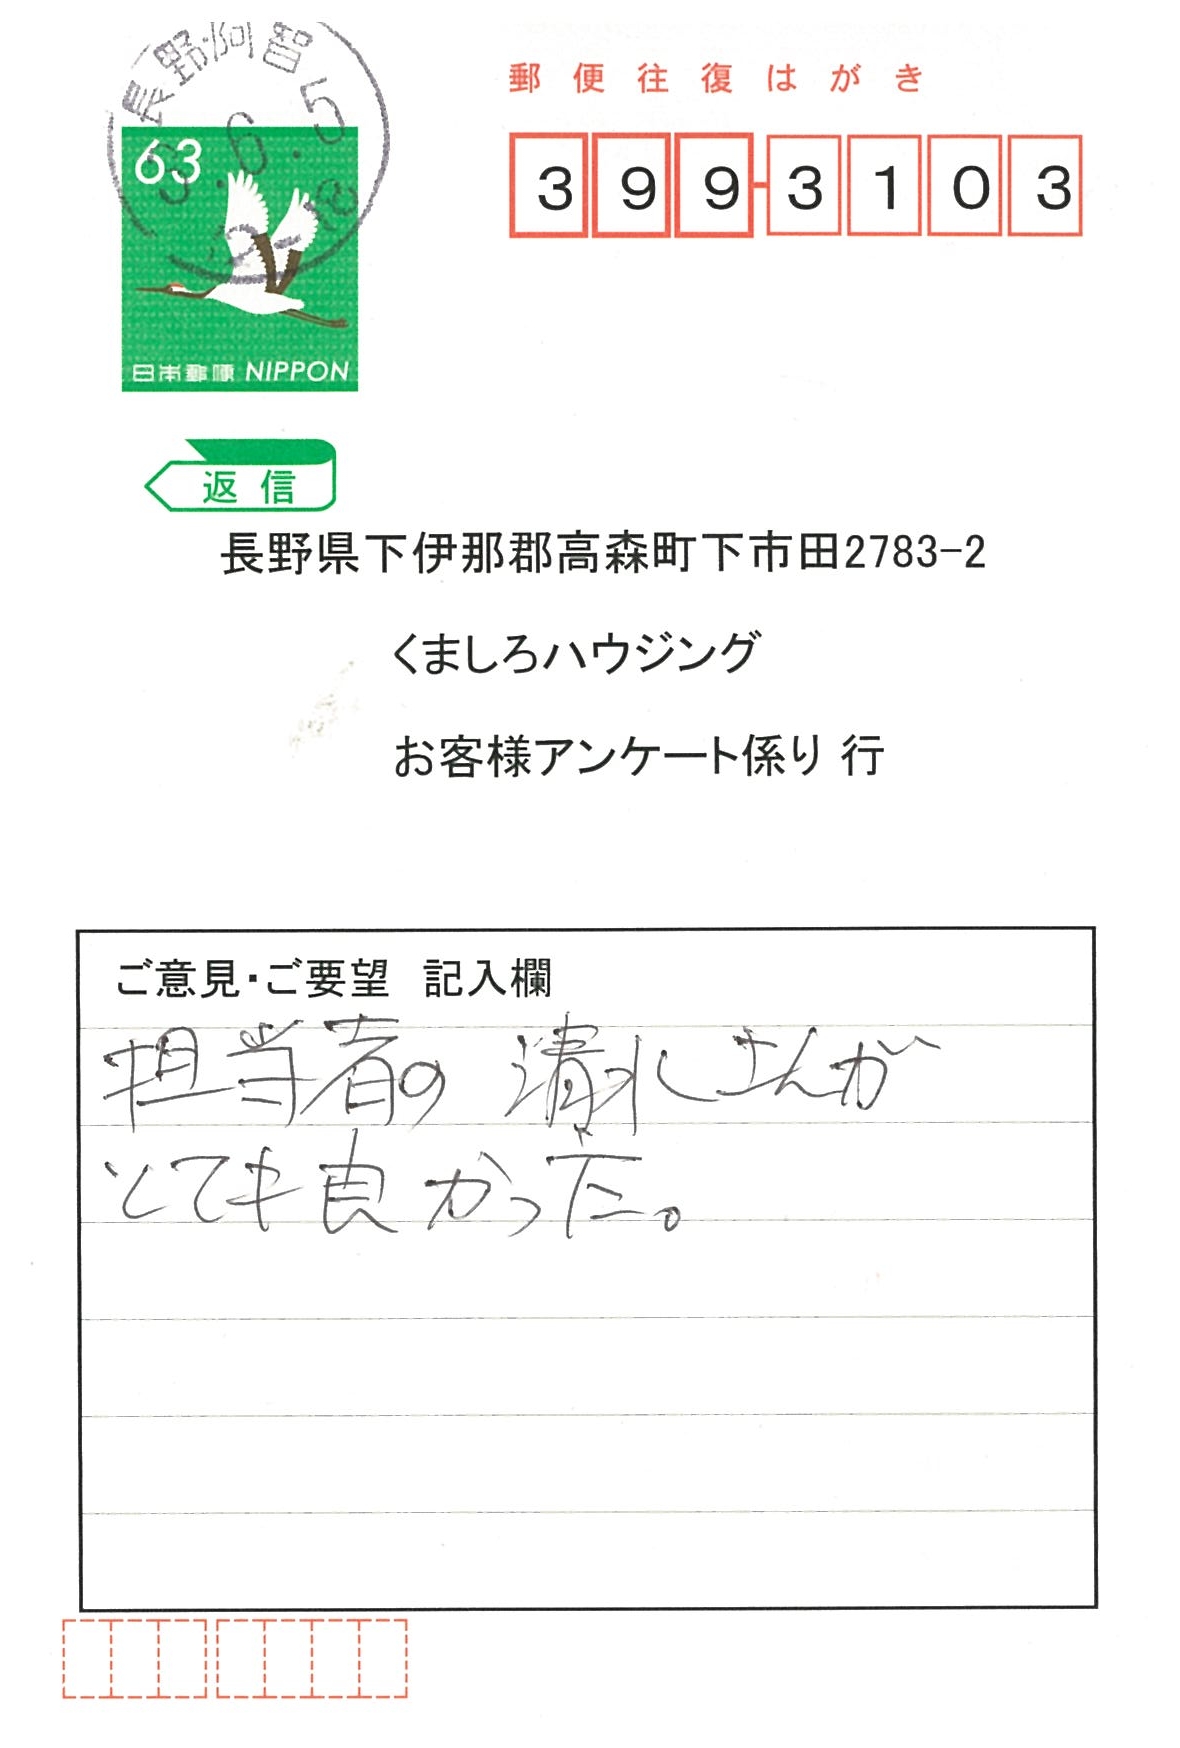 長野阿智
3.6.5
63
日本郵便 NIPPON
郵便往復はがき
399-3103
返信
長野県下伊那郡高森町下市田2783-2
くましろハウジング
お客様アンケート係り 行
ご意見・ご要望 記入欄
担当者の 清水さんが
とても良かった。